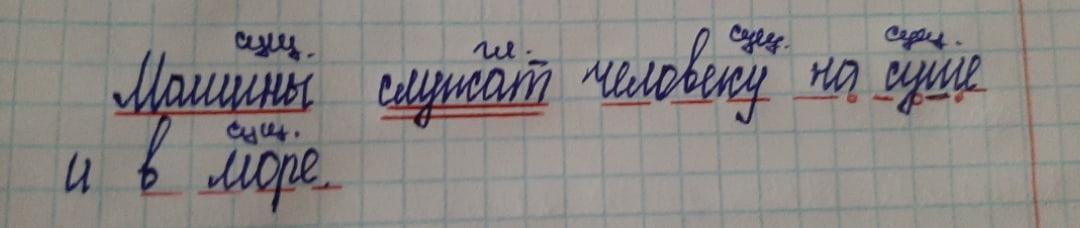 сущ. гл. сущ. сущ.
Машины служат человеку на суше
сущ.
и в море.